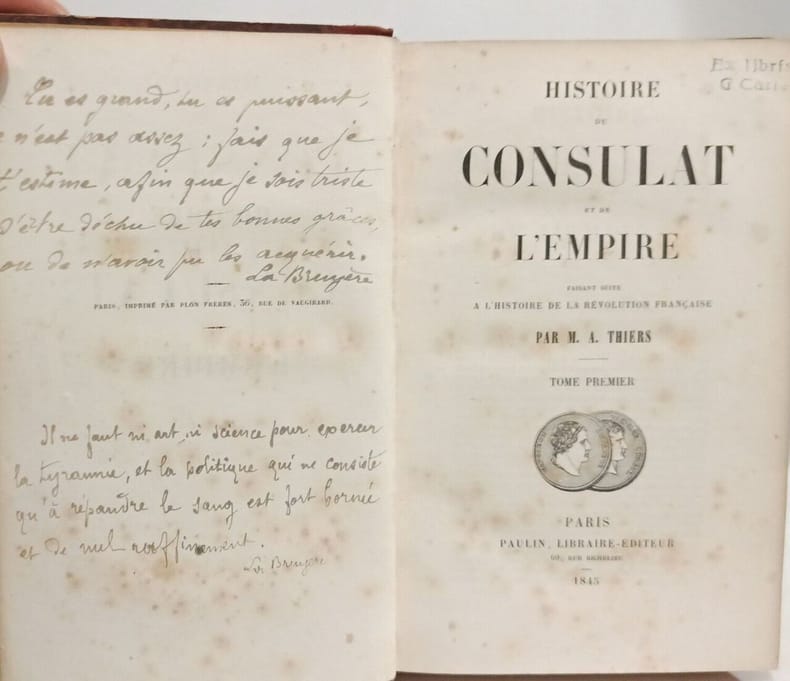 Tu es grand, tu es puissant,
n'est pas assez ; fais que je
t'estime, afin que je sois triste
d'être déchu de tes bonnes grâces,
ou de n'avoir pu les acquérir.
La Bruyère
PARIS, IMPRIMÉ PAR PLON FRÈRES, 36, RUE DE VAUGIRARD.
Il ne faut ni art, ni science pour exercer
la tyrannie, et la politique qui ne consiste
qu'à répandre le sang est fort bornée
et de nul raffinement.
La Bruyère
Ex libris
G
HISTOIRE
DU
CONSULAT
ET DE
L'EMPIRE
FAISANT SUITE
A L'HISTOIRE DE LA RÉVOLUTION FRANÇAISE
PAR M. A. THIERS
TOME PREMIER
PARIS
PAULIN, LIBRAIRE-ÉDITEUR
60, RUE RICHELIEU
1845